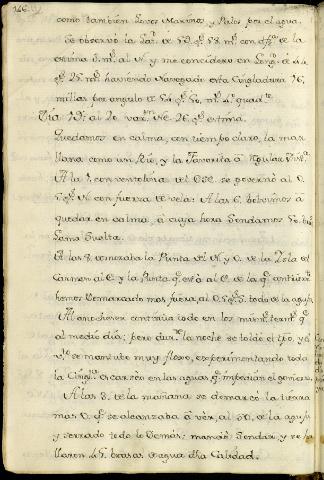 como tambien Lovos Marinos, y Patos por el agua.
Se observó la Lat.ᵈ de 59 g.ˢ 58 m.ˢ con dif.ª de la
estima 5 m.ˢ al N. y me considero en Long.ᵈ de
g.ˢ 25 m.ˢ haviendo Navegado esta singladura 76
millas por angulo de 5 g.ˢ 50 m.ˢ 4.º quadr.ᵗᵉ
Dia 19 al 20 var.ᵒⁿ N.E. 26 g.ˢ estima.
Quedamos en calma, con tiempo claro, la mar
llana como un Rio, y la Favorita á
A la 1. con ventolina del OSO. se governó al O.
5 g.ˢ N. con fuerza de vela: A las 6. bolvimos á
quedar en calma, á cuya hora sondamos 50 br.ˢ
Lama suelta.
A las 8. demorava la Punta del N. y O. de la Isla del
Carmen al E. y la Punta q.ᵉ está al O. de la q.ᵉ
hemos Demarcado mas fuera, al O. 5 g.ˢ S. todo de la aguja
Al anochecer continúa todo en los mism.ˢ term.ˢ q.ᵉ
al medio dia; pero dur.ᵗᵉ la noche se toldo el tpo, y el
v.ᵗᵒ se mantuvo muy floxo, experimentando toda
la sing.ʳᵃ escarceo en las aguas q.ᵉ impedian el govierno.
A las 8. de la mañana se demarcó la tierra
mas O. q.ᵉ se alcanzaba á vèr, al SO. de la aguja
y serrado todo lo demás: mandé sondar, y se
llaron 45. brasas de agua dha Calidad.